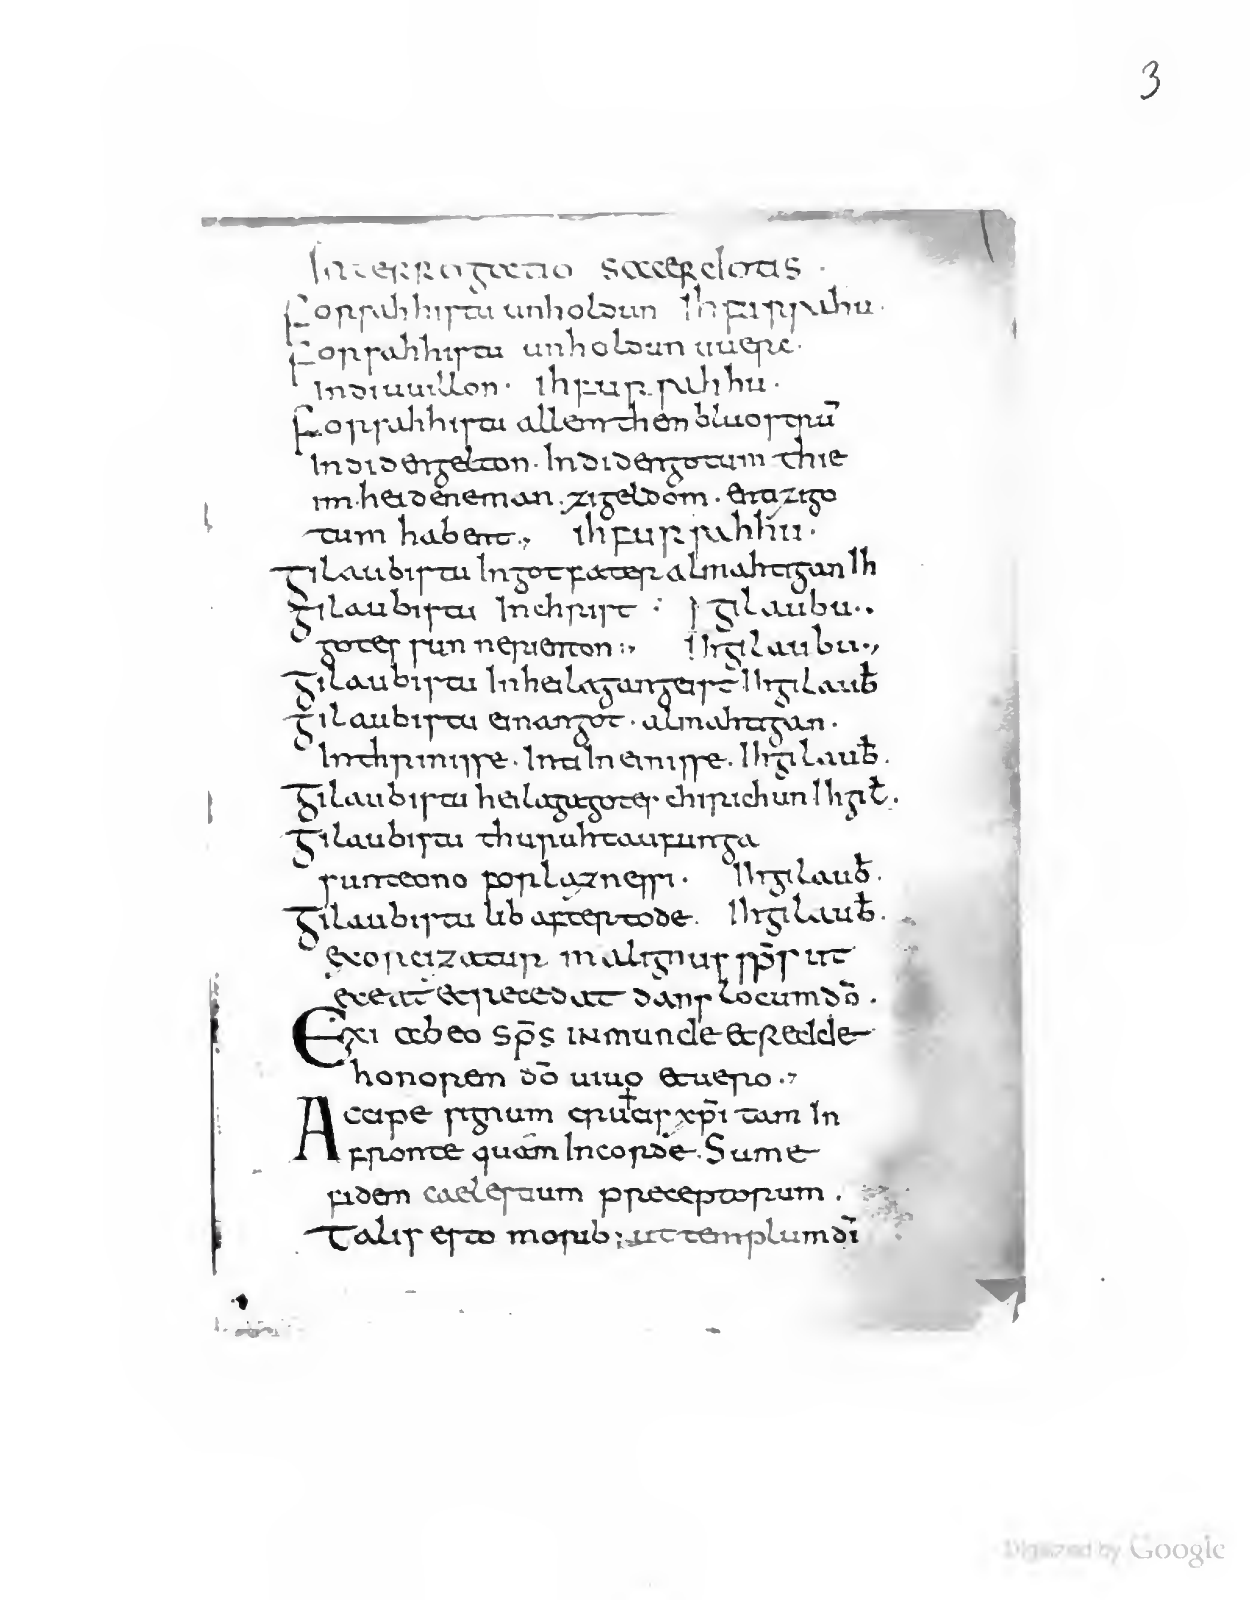 3
Interrogatio sacerdotis .
Forsahhistu unholdun Ih fursahu .
Forsahhistu unholdun uuerc .
Indi uuillon . ihfursahhu .
Forsahhistu allem them bluostrū
Indi den gelton . Indi den gotum thie
im heidene man . zi geldom . enti zi go
tum habent ., ihfursahhu .
Gilaubistu In got fater almahtigan Ih
Gilaubistu In christ : gilaubu ..
gotes sun nerienton :, Ihgilaubu .,
Gilaubistu In heilagan geist Ihgilaub̄
Gilaubistu einan got . almahtigan .
In thrinisse . Inti In einisse . Ihgilaub̄ .
Gilaubistu heilaga gotes chirichun Ihgil̄ .
Gilaubistu thuruh taufunga
sunteono forlaznessi . Ihgilaub̄ .
Gilaubistu lib after tode . Ihgilaub̄ .
exorcizatur malignus sp̄s ut
exeat et recedat dans locum dō .
Exi ab eo sp̄s inmunde et redde
honorem dō uiuo et uero .,
Accipe signum crucis xp̄i tam In
fronte quam In corde . Sume
fidem caelestium preceptorum .
Talis esto morib; ut templum dī
Digitized by Google